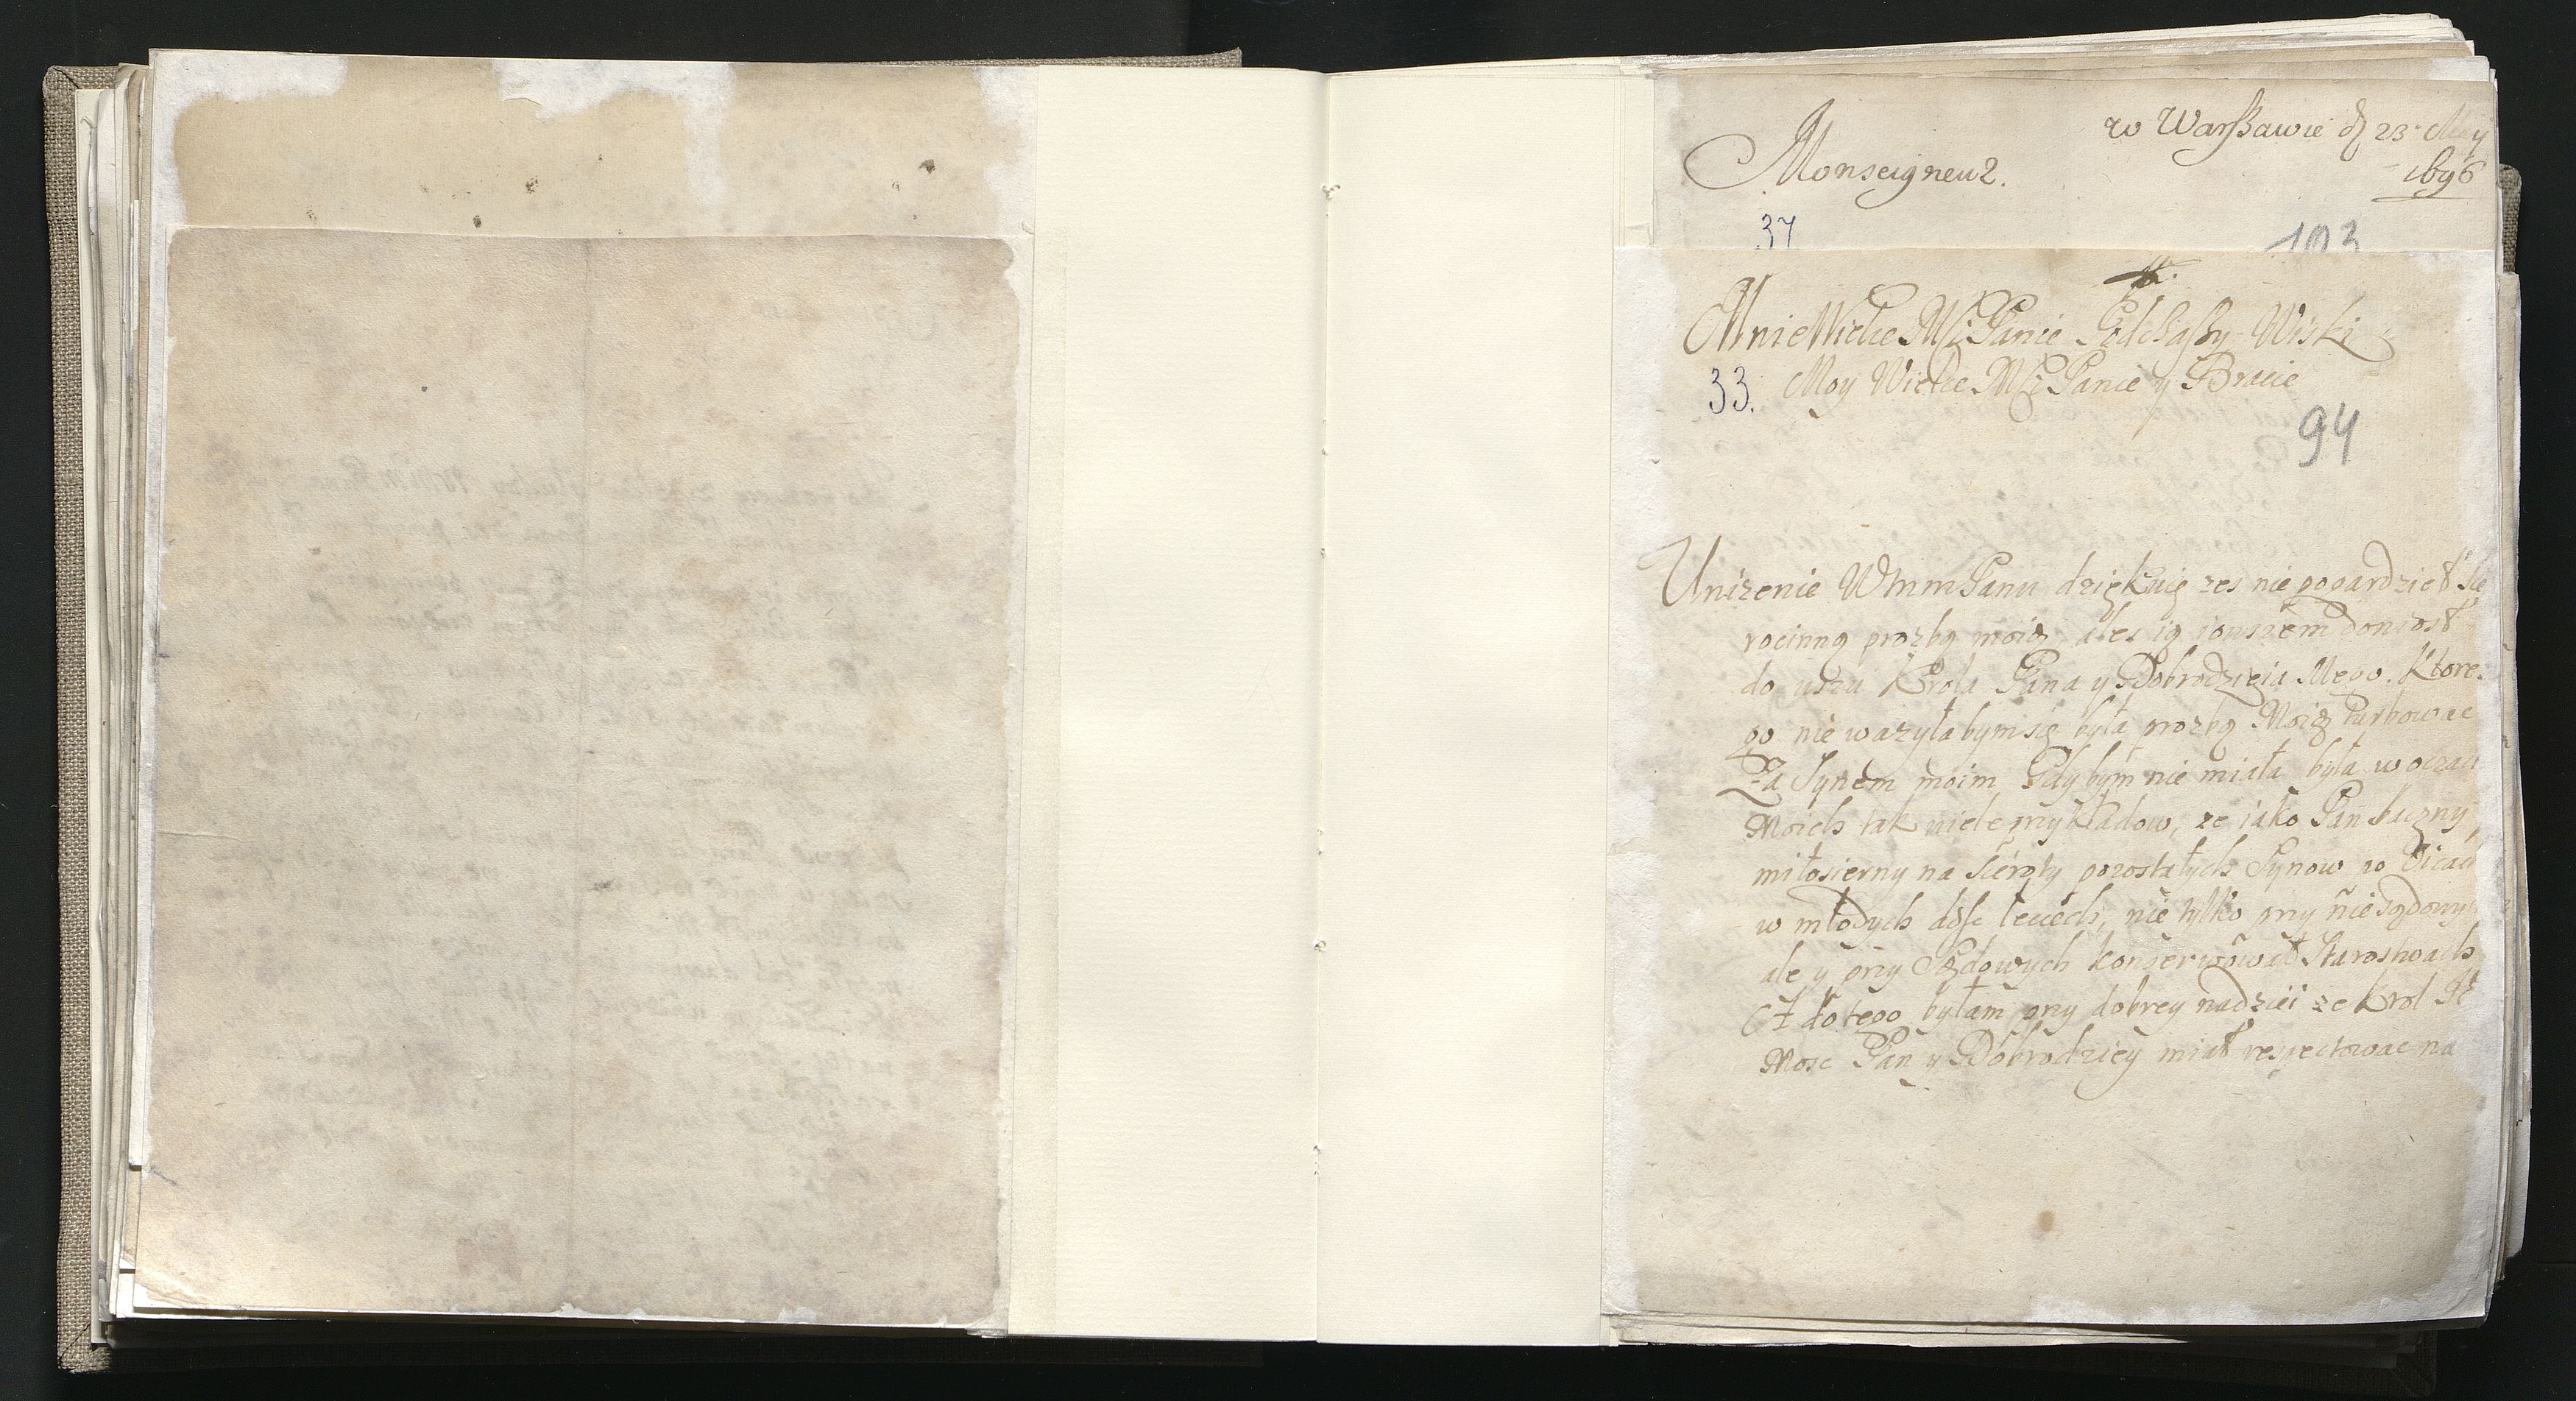 w Warszawie d 23 May
1696
Monseigneur.
37
103
Mnie Wielce Mśći Panie Podczaszy Wiski
33. Moy Wielce Mśći Panie y Bracie
94
Unizenie WmmPanu dziękuię zes nie pogardzieł sie
rocinną prozbą moią ales ią iowszem doniosł
do uszu Krola Pana y Dobrodzieia Mego. Ktore
go nie wazyłabym się była prozbą Moią turbowac
Za Synem moim Gdybym nie miała była w oczach
Moich tak wiele przykładow, ze iako Pan baczny,
miłosierny na sieroty pozostałych Synow po Oicach
w młodych dosc leciech, nie tylko przy nie sądowych
ale y przy Sądowych konserwował Starostwach
do tego byłam przy dobrey nadziei ze Krol Je
Mosc Pan y Dobrodziey miał respectowac na